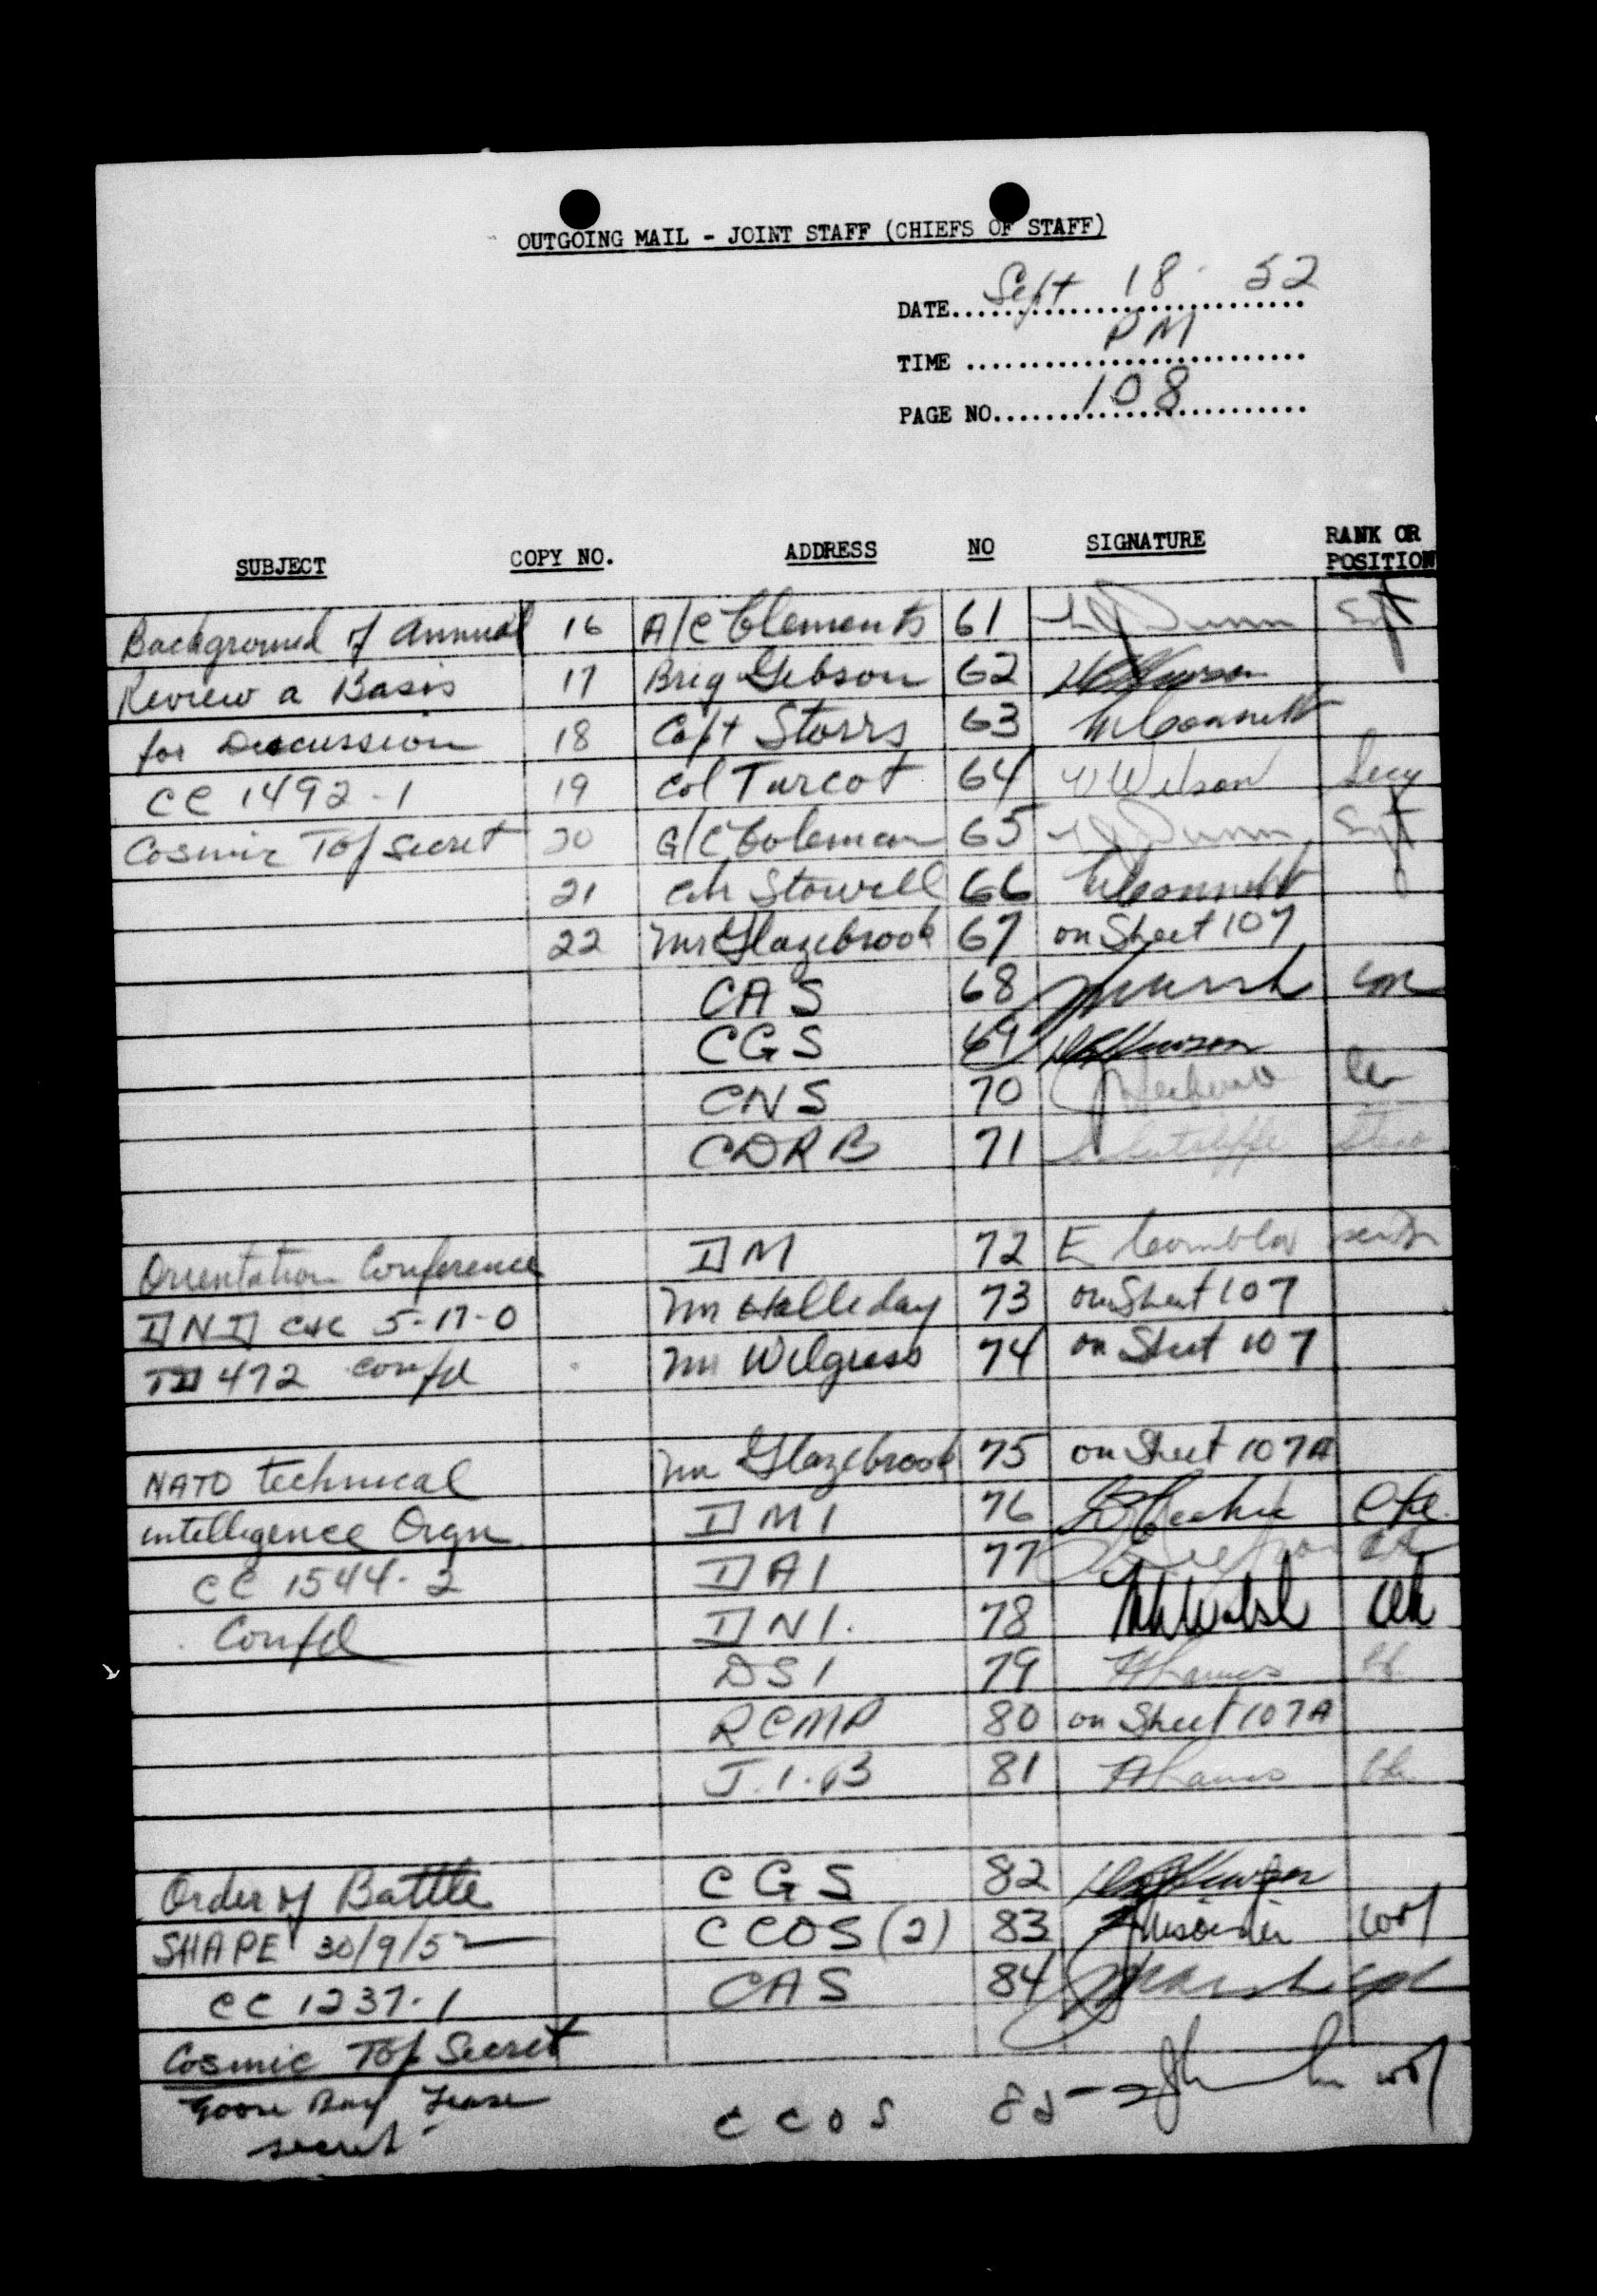 OUTGOING MAIL - JOINT STAFF (CHIEFS OF STAFF)
DATE Sept 18 52
TIME PM
PAGE NO. 108
SUBJECT COPY NO. ADDRESS NO SIGNATURE RANK OR POSITION
Background of Annual 16 A/C Clements 61 Dunn Sgt
Review a Basis 17 Brig Gibson 62
for Discussion 18 Capt Storrs 63
CC 1492-1 19 Col Turcot 64 W Wilson Secy
Cosmic Top Secret 20 G/C Coleman 65 Dunn Sgt
21 Stowell 66
22 Mr Glazebrook 67 on Sheet 107
CAS 68
CGS 69
CNS 70
CDRB 71
Orientation Conference DM 72 E
DND 5-17-0 Mr Halleday 73 on Sheet 107
472 Confd Mr Wilgress 74 on Sheet 107
NATO technical Mr Glazebrook 75 on Sheet 107A
intelligence Orgn DMI 76
CC 1544-2 DAI 77
Confd DNI. 78 Walsh
DSI 79
RCMP 80 on Sheet 107A
J.I.B 81
Order of Battle CGS 82
SHAPE 30/9/52 CCOS (2) 83
CC 1237-1 CAS 84
Cosmic Top Secret
Goose Bay Lease CCOS 85
secret